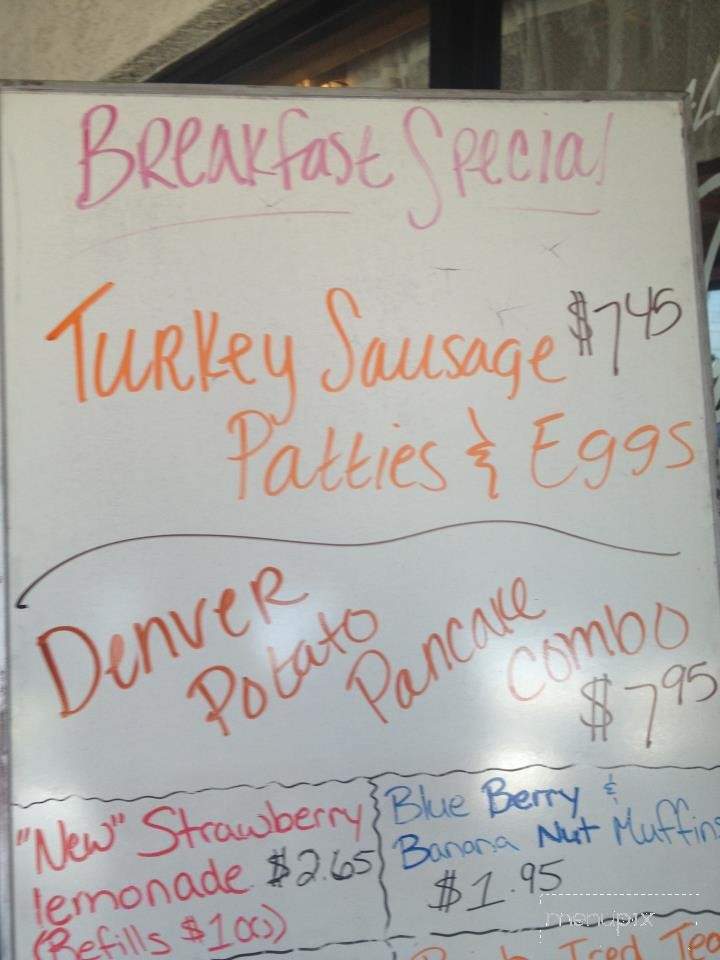 Breakfast Special
Turkey Sausage $7.45
Patties & Eggs
Denver
Potato
Pancake
Combo
$7.95
"New" Strawberry
lemonade $2.65
(Refills $1.00)
Blue Berry &
Banana Nut Muffins
$1.95
Iced Tea
menupix